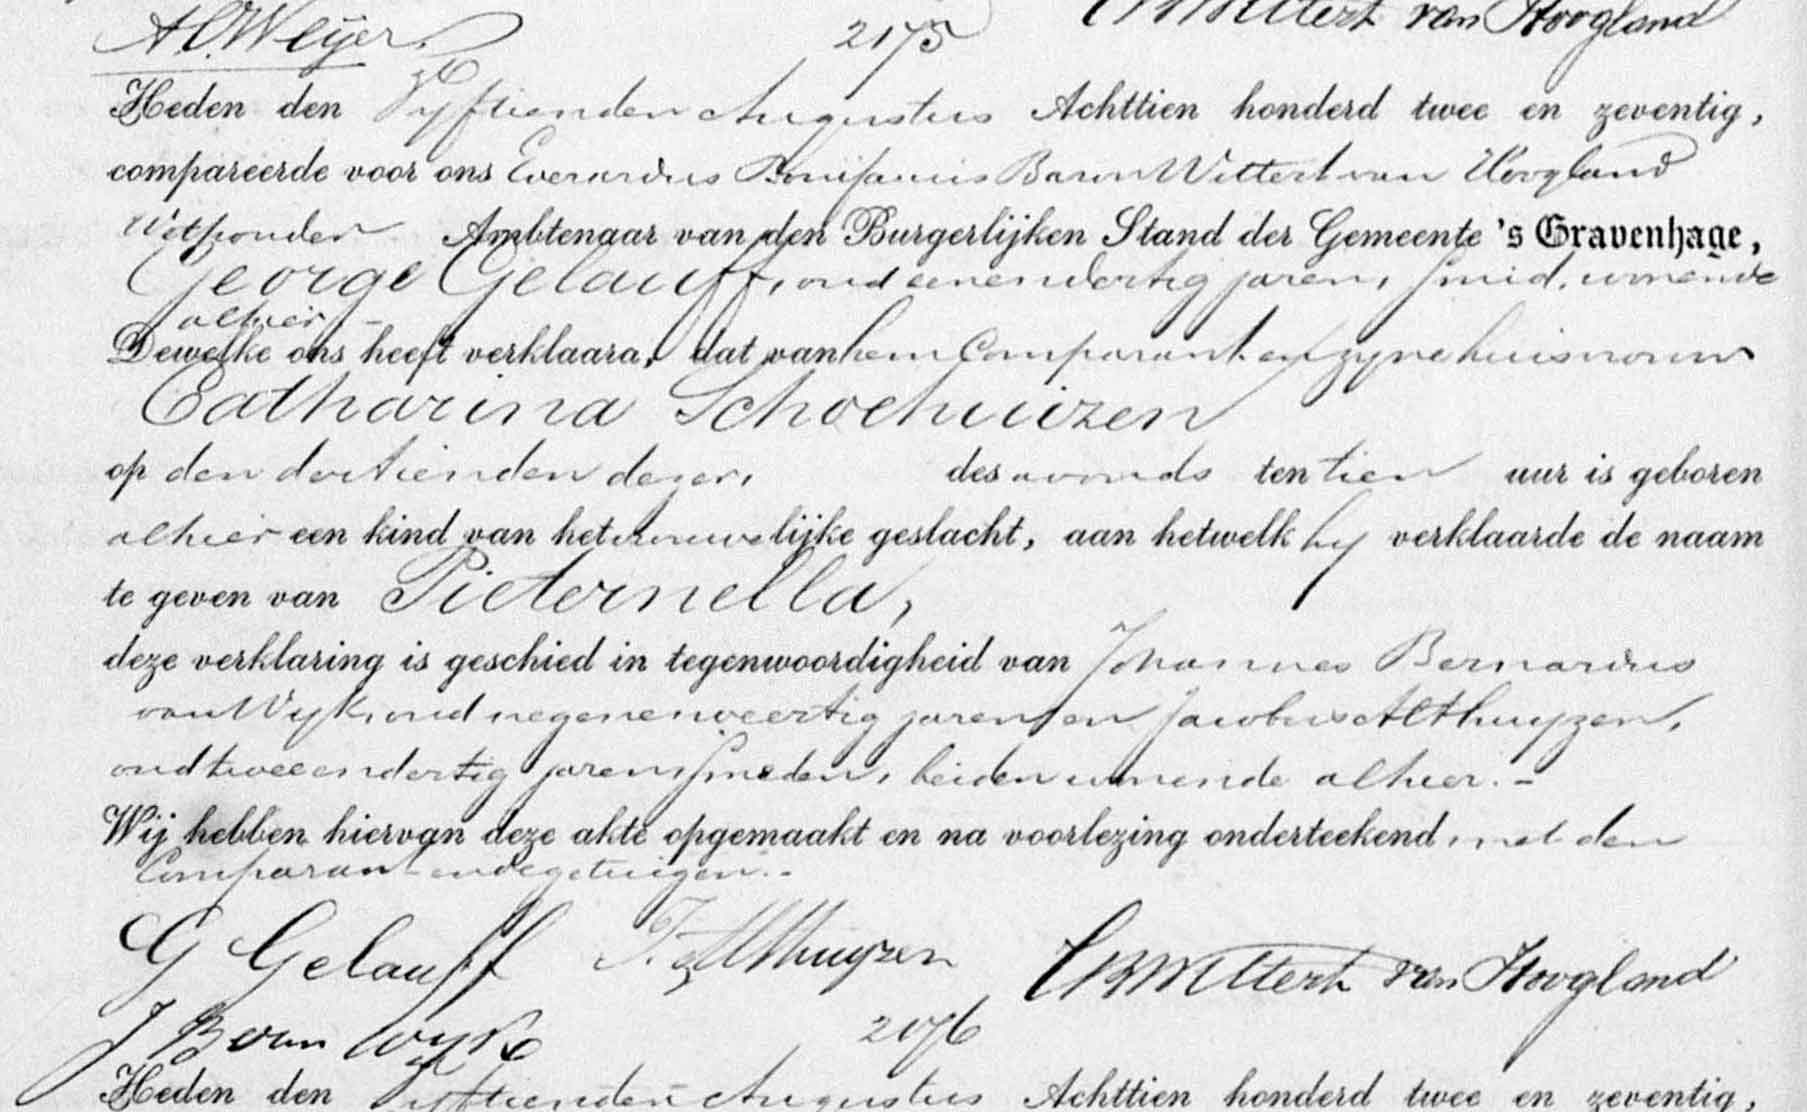 A.C. Weijer.
2175
EBWittert van Hoogland
Heden den Vyftienden Augustus Achttien honderd twee en zeventig,
compareerde voor ons Everardus Bonifacius Baron Wittert van Hoogland
Wethouder Ambtenaar van den Burgerlijken Stand der Gemeente 's Gravenhage,
George Gelauff, oud eenendertig jaren, smid, wonende
alhier –
Dewelke ons heeft verklaard, dat van hem Comparant en zyne huisvrouw
Catharina Schoehuizen
op den dertienden dezer, des avonds ten tien uur is geboren
alhier een kind van het vrouwelijke geslacht, aan hetwelk hy verklaarde de naam
te geven van Pieternella,
deze verklaring is geschied in tegenwoordigheid van Johannes Bernardus
van Wyk, oud negenenveertig jaren en Jacobus Althuyzen,
oud tweeendertig jaren, smeden, beiden wonende alhier. –
Wij hebben hiervan deze akte opgemaakt en na voorlezing onderteekend, met den
Comparant en de getuigen. –
G Gelauff
J. Althuyzen
EBWittert van Hoogland
J B van Wyk
2176
Heden den Vyftienden Augustus Achttien honderd twee en zeventig,